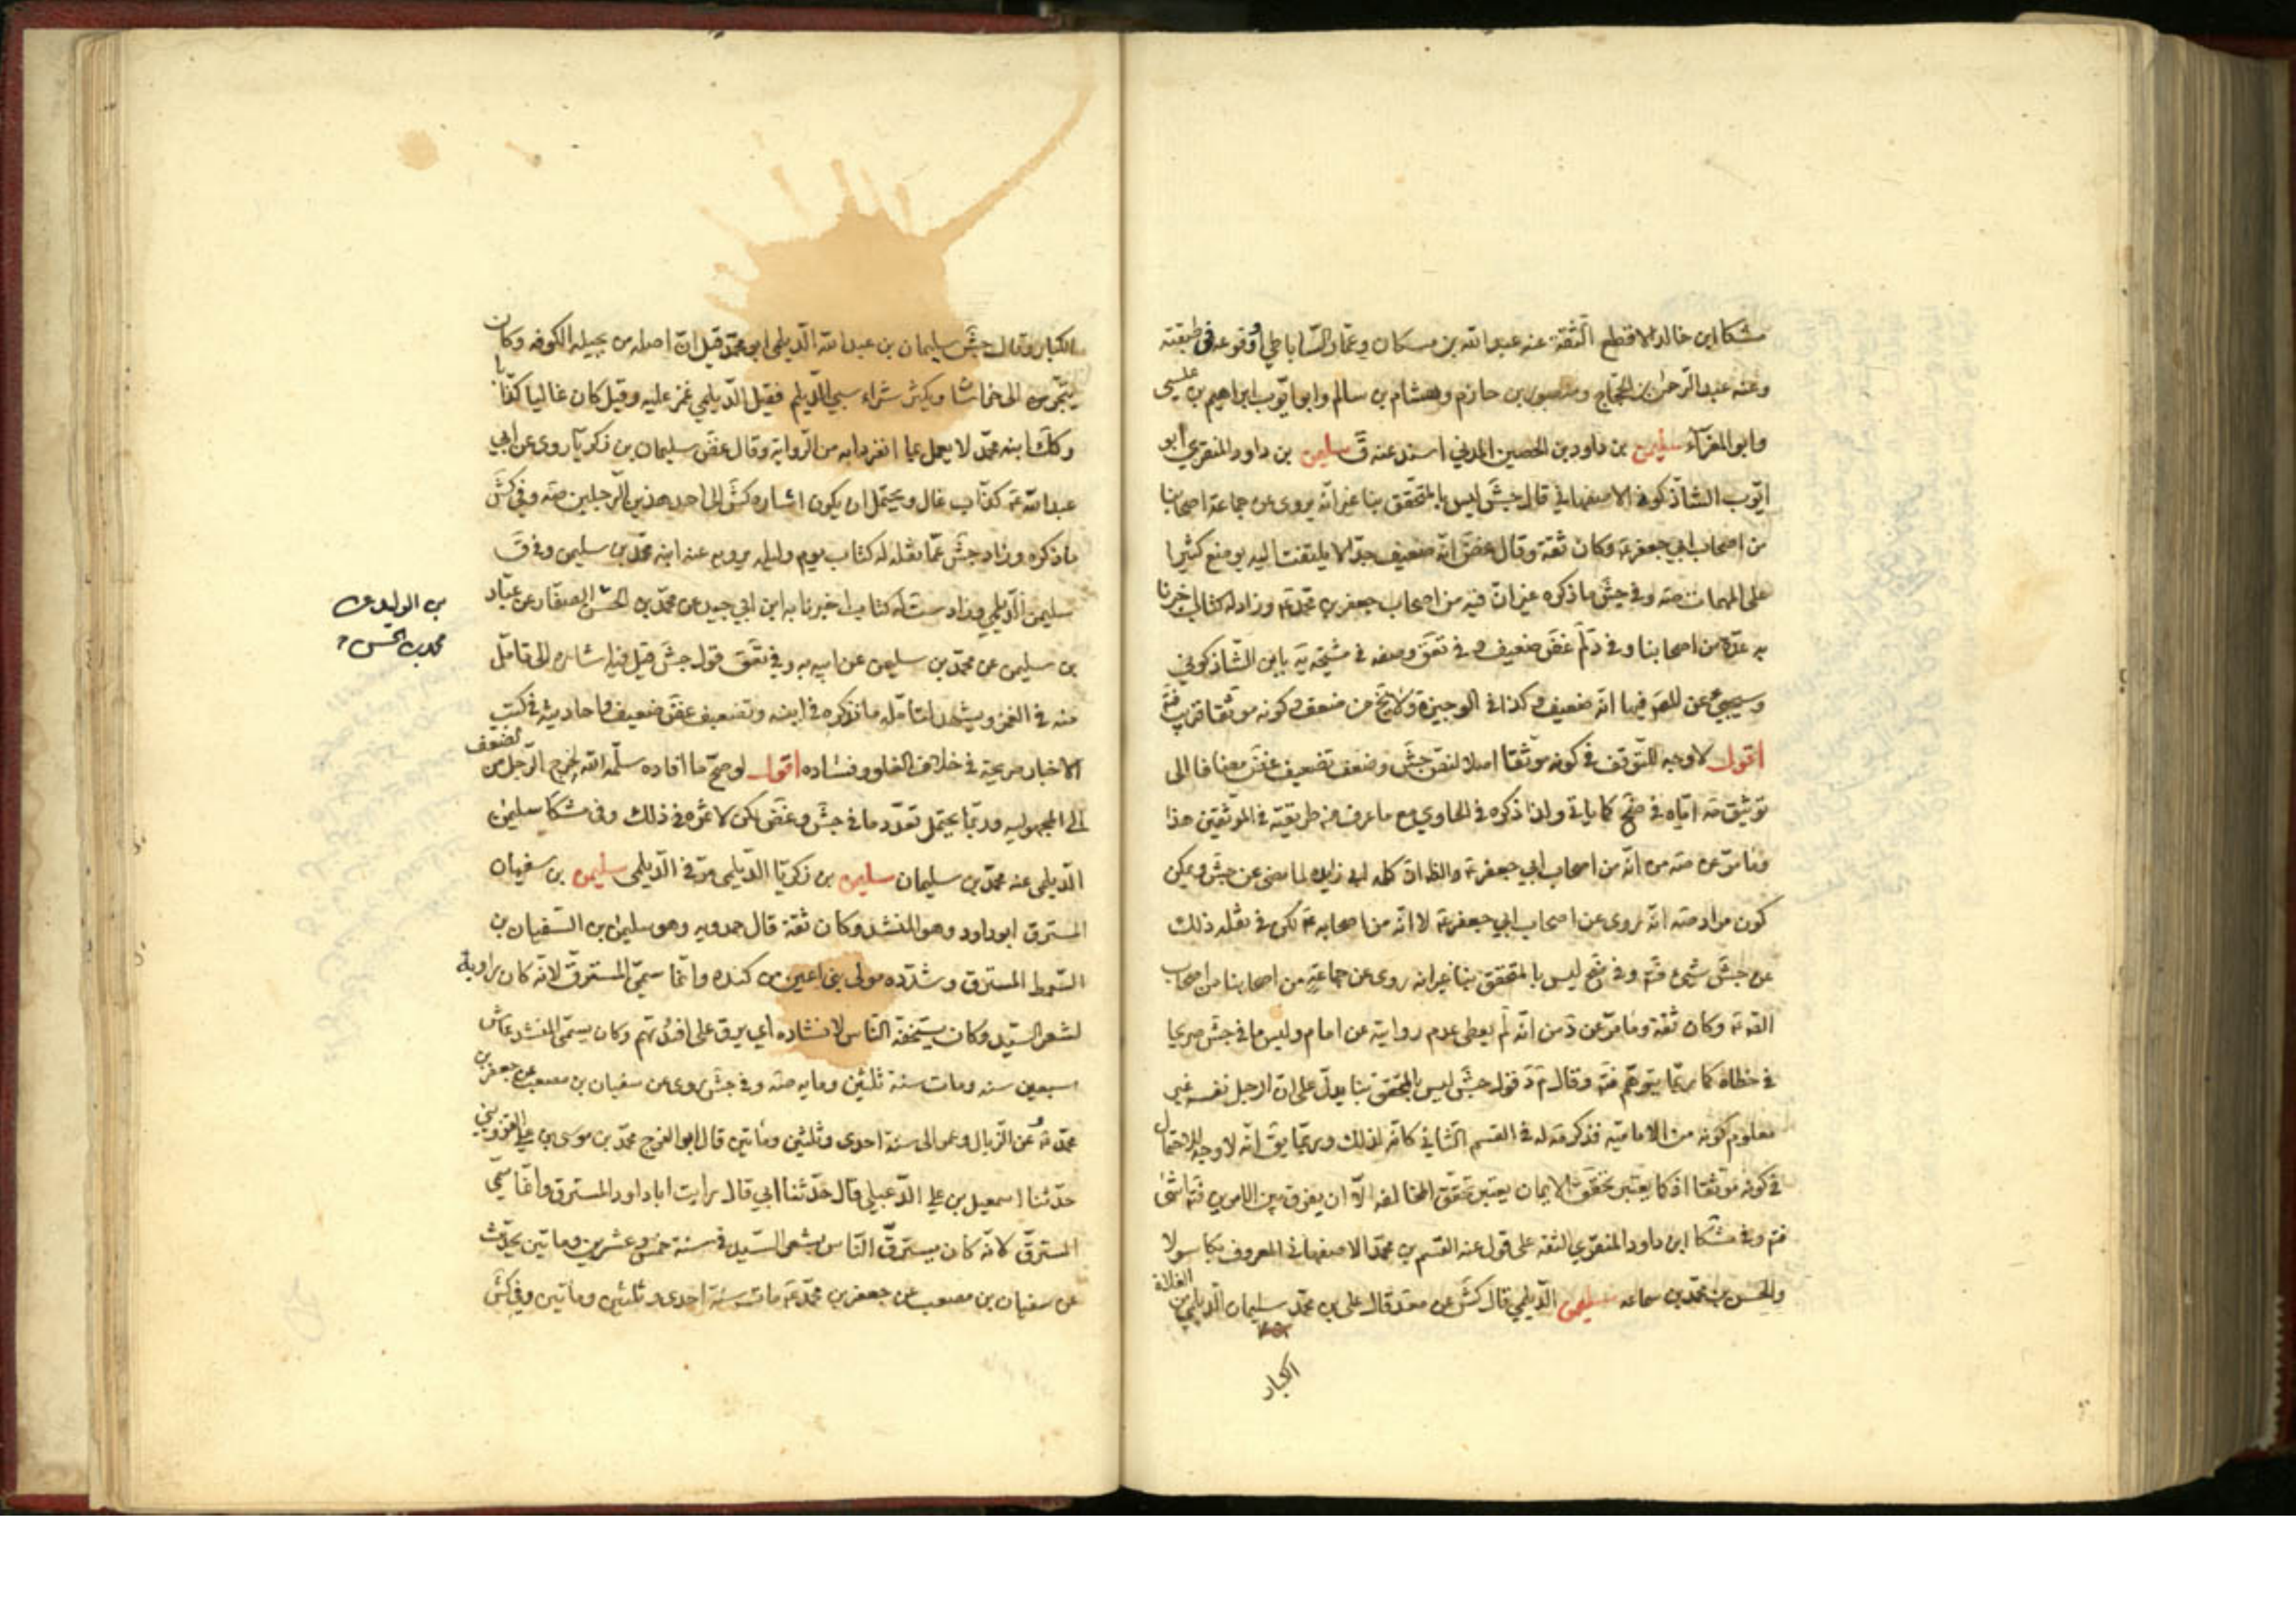 مشكا ابن خالد الاقطع الثقة عنه عبد الله بن مسكان وعمار الساباطي ووقوعه في طبقته
وعنه عبد الرحمن بن الحجاج ومنصور بن حازم وهشام بن سالم وابو ايوب ابراهيم بن عيسى
وابو المغراء سليمن بن داود بن الحصين المدني اسند عنه ق سليمن بن داود المنقري ابو
ايوب الشاذكوني الاصفهاني قال جش ليس بالمتحقق بنا غير انه يروي عن جماعة اصحابنا
من اصحاب ابي جعفر ع وكان ثقة وقال غض انه ضعيف جدا لا يلتفت اليه يوضع كثيرا
على المهمات صه وفي جش ما ذكره غير ان فيه من اصحاب جعفر بن محمد ع وزاد له كتاب اخبرنا
به عدة من اصحابنا وفي د لم غض ضعيف وفي تعق وصفه في مشيخة يه بابن الشاذكوني
اقول لا وجه للتوقف في كونه موثقا اصلا لنص جش وضعف تضعيف غض مضافا الى
توثيق مه اياه في ضح كما ياتي ولذا ذكره في الحاوي مع ما عرف من طريقته في الموثقين هذا
وما مر عن صه من انه من اصحاب ابي جعفر ع والظ ان كلمة ابي زايدة لما مضى عن جش ويمكن
كون مراد صه انه يروي عن اصحاب ابي جعفر ع لا انه من اصحابه ع لكن في نقله ذلك
عن جش شيء فتم وفي ضح ليس بالمتحقق بنا غير انه روى عن جماعة من اصحابنا من اصحاب
الصه ع وكان ثقة وما مر عن د من انه لم يعطي عدم روايته عن امام وليس ما في جش صريحا
في خطاه كما ربما يتوهم فته وقال م د قول جش ليس بالمتحقق بنا يدل على ان الرجل نفسه غير
معلوم كونه من الامامية فذكر مه له في القسم الثاني كانه لذلك وربما يق انه لا وجه للاحتمال
في كونه موثقا اذ كما يعتبر تحقق الايمان يعتبر تحقق المخالفة الا ان يفرق بين الامرين فته انتهى
فتم وفي مشكا ابن داود المنقري الثقة على قول عنه القسم بن محمد الاصفهاني المعروف بكاسولا
والحسن بن محمد بن سماعه سليمن الديلمي قال كش عن محمد قال علي بن محمد سليمان الديلمي من الغلاة
الكبار
الكبار وقال جش سليمان بن عبد الله الديلمي ابو محمد قيل ان اصله من بجيلة الكوفه وكان
يتجر الى خراسان ويكثر شراء سبي الديلم فقيل الديلمي غمز عليه وقيل كان غاليا كذابا
وكك ابنه محمد لا يعمل بما انفردا به من الرواية وقال غض سليمان بن زكريا روى عن ابي
عبد الله ع كذاب غال ويحتمل ان يكون اشاره كش الى احد هذين الرجلين صه وفي كش
ما ذكره وزاد جش عما نقله له كتاب يوم وليله يرويه عنه ابنه محمد بن سليمن وفي ق
سليمن الديلمي وزاد ست له كتاب اخبرنا به ابن ابي جيد عن محمد بن الحسن الصفار عن عباد
بن الوليد عن
محمد بن الحسن
بن سليمن عن محمد بن سليمن عن ابيه به وفي تعق قول جش قيل فيه اشاره الى تامل
منه في الغمز ويشهد له تامله ما نذكره في ابنه وتضعيف غض ضعيف واحاديثه في كتب
الاخبار صريحة في خلاف الغلو وفساده اقول لو صح ما افاده سلمه الله لخرج الرجل من الضعف
الى المجهوليه وربما يحتمل تعدد ما في جش وغض لكن لا ثمره في ذلك وفي مشكا سليمن
الديلمي عنه محمد بن سليمان سليمن بن زكريا الديلمي مر في الديلمي سليمن بن سفيان
المسترق ابو داود وهو المنشد وكان ثقة قال حمدويه وهو سليمن بن السفيان بن
السمط المسترق وشدده مولى بني اعين من كنده وانما سمي المسترق لانه كان راوية
لشعر السيد وكان يستخفه الناس لانشاده اي يرق على افئدتهم وكان يسمى المنشد عاش
سبعين سنه ومات سنة ثلثين ومايه صه وفي جش روى عن سفيان بن مصعب عن جعفر بن
محمد ع عن الزبال وعمر الى سنة احدى وثلثين ومأتين قال ابو الفرج محمد بن موسى بن علي القزويني
حدثنا اسمعيل بن علي الدعبلي قال حدثنا ابي قال رايت ابا داود المسترق وانما سمي
المسترق لانه كان يسترق الناس بشعر السيد في سنة خمس وعشرين ومأتين يحدث
عن سفيان بن مصعب عن جعفر بن محمد ع مات سنة احدى وثلثين ومأتين وفي كش